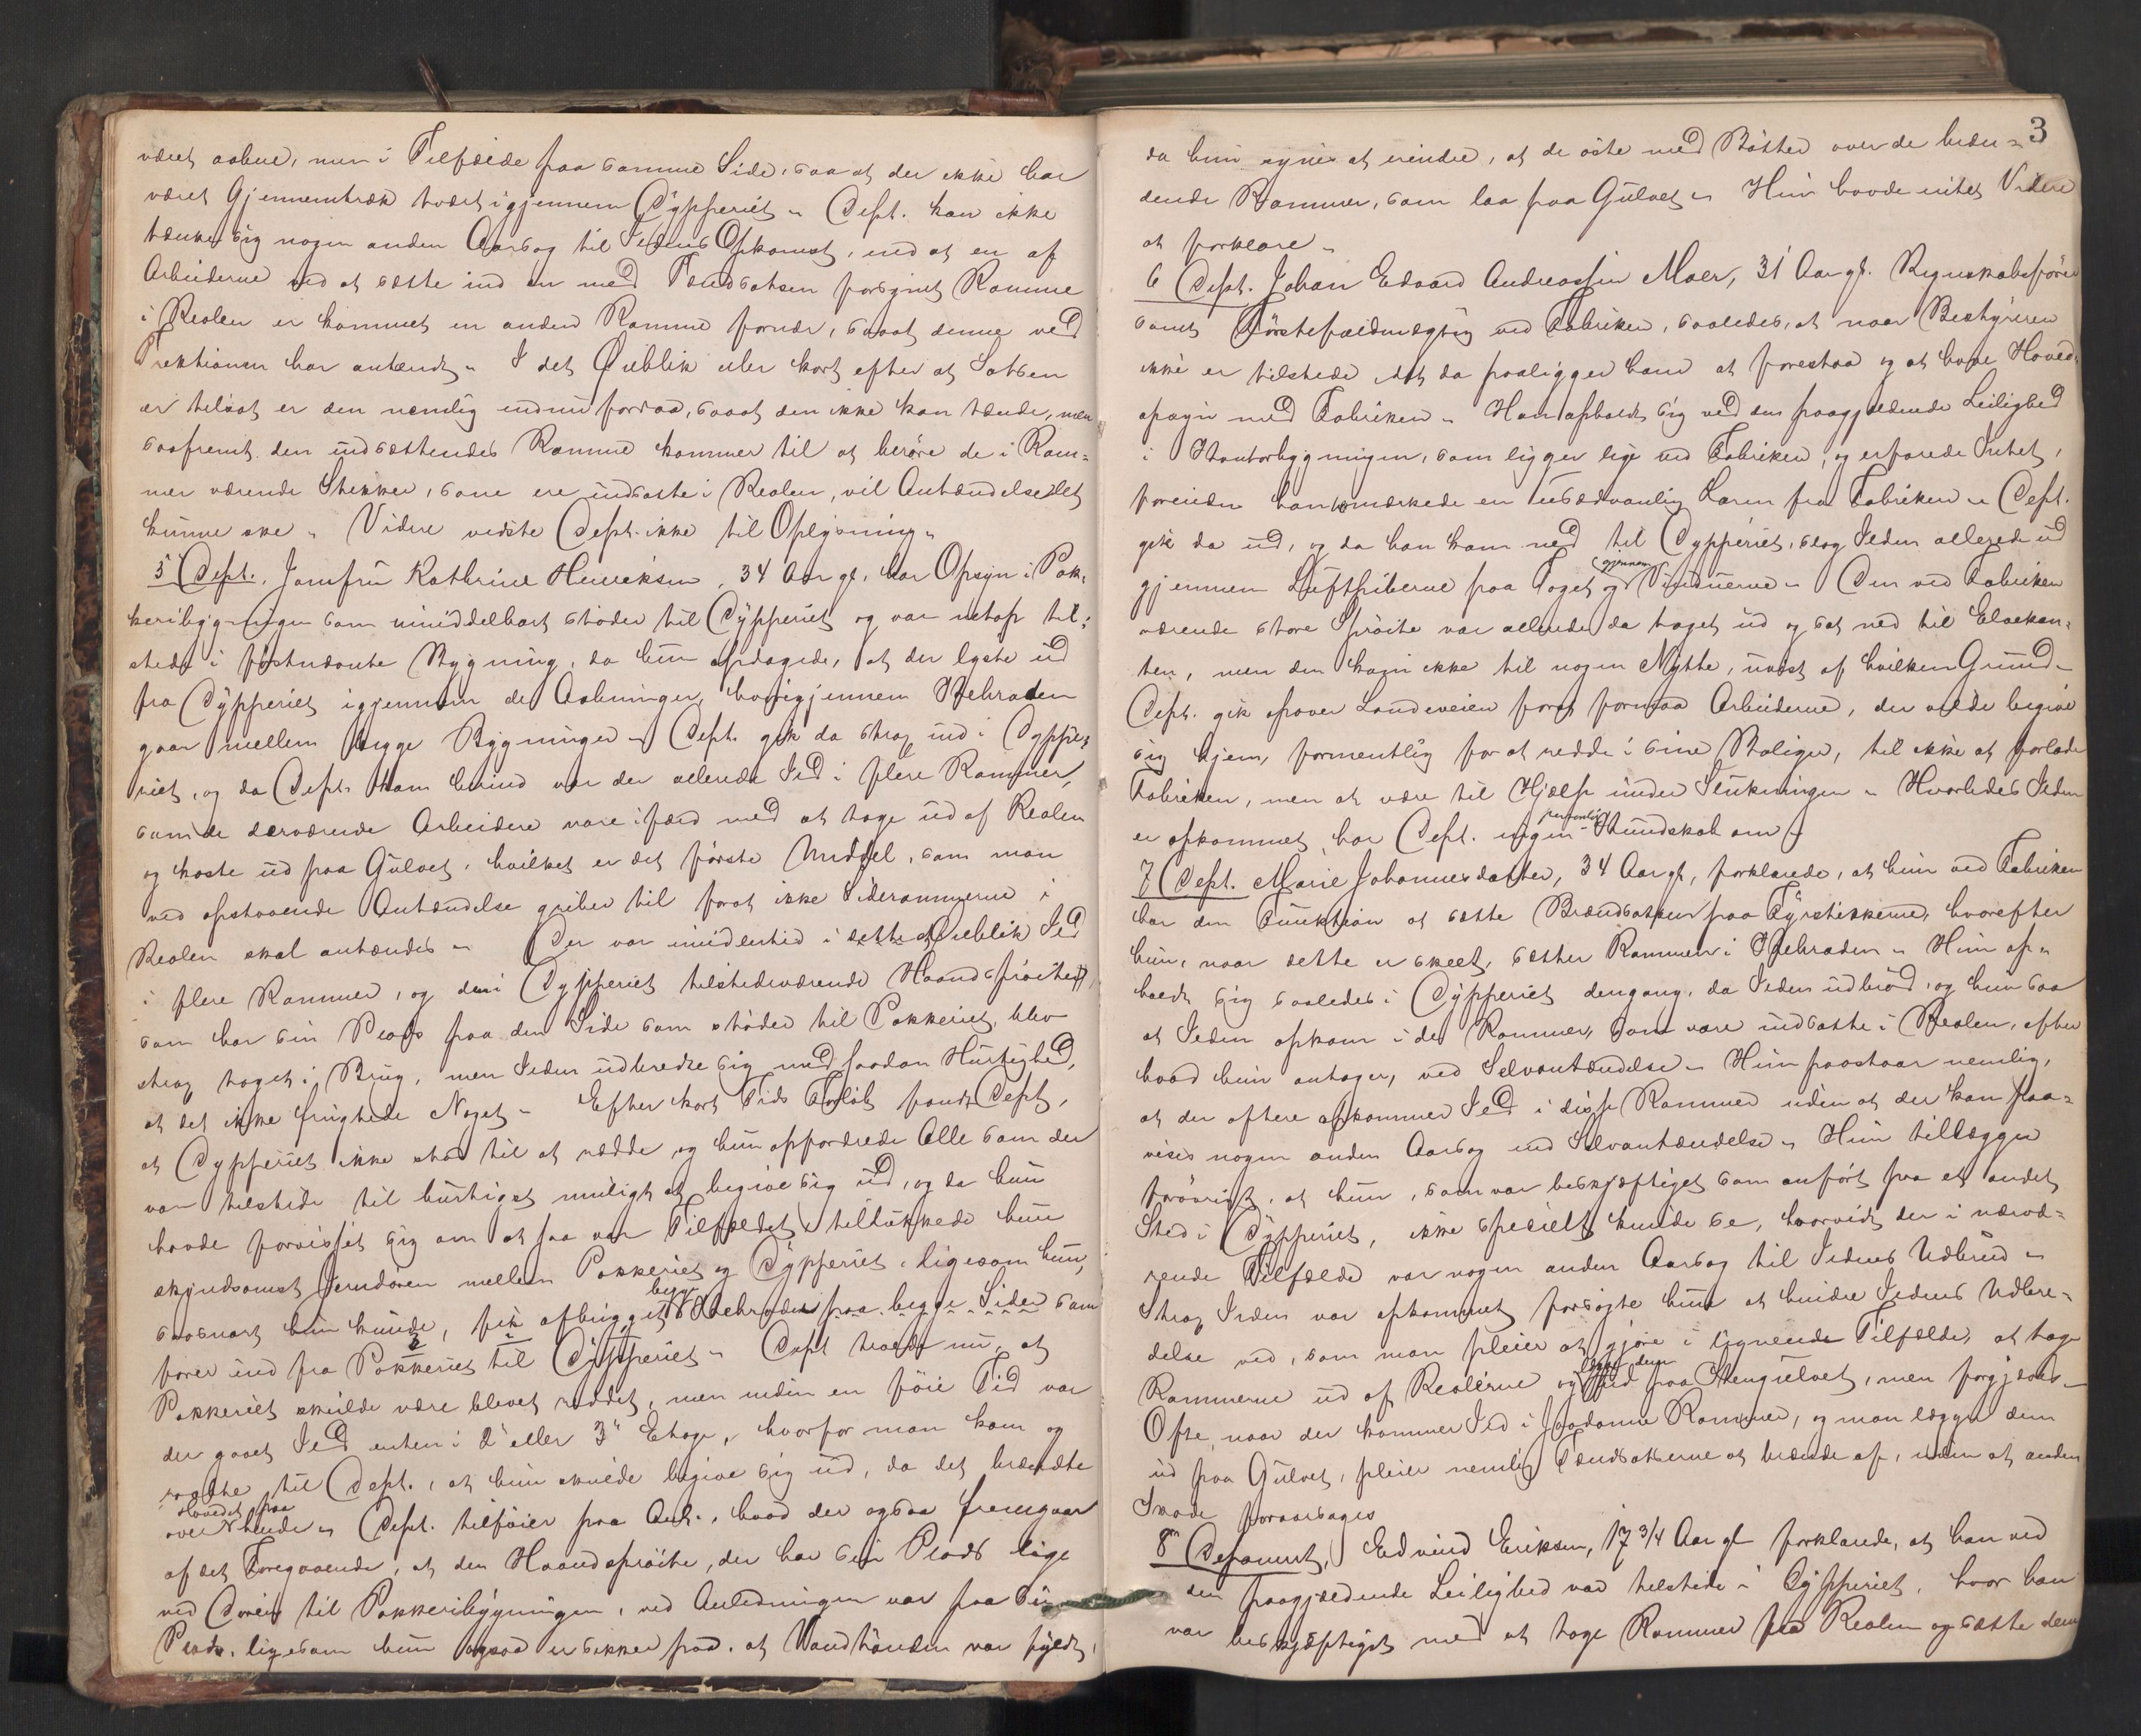 været aabne, men i Tilfælde paa samme Side, saa at der ikke har
været Gjennemtræk tvært igjennem Dypperiet. Dept. kan ikke
tænke sig nogen anden Aarsag til Ildens Opkomst, end at en af
Arbeiderne ved at sætte ind en med Tændsatsen forsynet Ramme
i Reolen er kommet en anden Ramme for nær, saaat denne ved
Friktionen har antændt. I det Øieblik eller kort efter at Satsen
er tilsat er den nemlig endnu for raa, saaat den ikke kan tænde, men
saafremt den indsættendes Ramme kommer til at berøre de i Ram=
mer værende Stikker, som ere indsatte i Reolen, vil Antændelse let
kunne ske. Videre vidste Dept. ikke til Oplysning.
5 Dept. Jomfru Kathrine Henriksen, 34 Aar gl. har Opsyn i Pak=
keribygningen som umiddelbart støder til Dypperiet og var netop til=
stede i sidstnævnte Bygning, da hun opdagede, at der lyste ud
fra Dypperiet igjennem de Aabninger, hvorigjennem Kjelraden
gaar mellem begge Bygninger. Dept. gik da strax ind i Dyppe=
riet, og da Dept. kom herind var der allerede Ild i flere Rammer,
som de derværende Arbeidere vare ifærd med at tage ud af Reolen
og kaste ud paa Gulvet, hvilket er det første Middel, som man
ved opstaaende Antændelse griber til for at ikke Siderammerne i
Reolen skal antændes. Der var imidlertid i dette Øieblik Ild
i flere Rammer, og den i Dypperiet tilstedeværende Haandsprøite,
som har sin Plads paa den Side som støder til Pakkeriet, blev
strax taget i Brug, men Ilden udbredte sig med saadan Hurtighed,
at det ikke frugtede Noget. Efter kort Tids Forløb fandt Dept.
at Dypperiet ikke stod til at redde og hun opfordrede Alle som der
var tilstede til hurtigst muligt at begive sig ud, og da hun
havde forvisset sig om at saa var Tilfældet tillukkede hun
skyndsomst Jerndøren mellem Pakkeriet og Dypperiet, ligesom hun,
saasnart hun kunde, fik afbrygget begge Kjelrader paa begge Sider som
fører ind fra Pakkeriet til Dypperiet. Dept troede nu, at
Pakkeriet skulde være blevet reddet, men inden en føie Tid var
der gaaet Ild enten i 2den eller 3die Etage, hvorfor man kom og
sagde til Dept., at hun skulde begive sig ud, da det brændte
over Hovedet paa hende. Dept. tilføier paa Anl., hvad der ogsaa fremgaar
af det Foregaaende, at den Haandsprøite, der har sin Plads lige
ved Døren til Pakkeribygningen, ved Anledningen var paa sin
Plads, ligesom hun ogsaa er sikker paa, at Vandtønden var fyldt,
3
da hun synes at erindre, at de øste med Bøtter over de bræn=
dende Rammer, som laa paa Gulvet. Hun havde intet Videre
at forklare.
6 Dept. Johan Edvard Andreassen Moer, 31 Aar gl. Regnskabsfører
samt Førstefuldmægtig ved Fabriken, saaledes, at naar Bestyreren
ikke er tilstede det da paaligger ham at forestaa og at have Hoved=
opsyn med Fabriken. Han opholdt sig ved den paagjældende Leilighed
i Kontorbygningen, som ligger lige ved Fabriken, og erfarede Intet,
forinden han bemærkede en usædvanlig Larm fra Fabriken. Dept.
gik da ud, og da han kom ned til Dypperiet, slog Ilden allerede ud
gjennem Luftpiberne paa Taget og gjennem Vinduerne. Den ved Fabriken
værende store Sprøite var allerede da taget ud og sat ned til Elvekan=
ten, men den kom ikke til nogen Nytte, uvist af hvilken Grund.
Dept. gik opover Landeveien for at formaa Arbeiderne, der vilde begive
sig hjem, formentlig for at redde i sine Boliger, til ikke at forlade
Fabriken, men at være til Hjælp under Slukningen. Hvorledes Ilden
er opkommet, har Dept. ingen personlig Kundskab om.
7 Dept. Marie Johannesdatter, 34 Aar gl, forklarede, at hun ved Fabriken
har den Funktion at sætte Brændsatsen paa Fyrstikkerne, hvorefter
hun, naar dette er skeet, sætter Rammen i Kjelraden. Hun op=
holdt sig saaledes i Dypperiet dengang, da Ilden udbrød, og hun saa
at Ilden opkom i de Rammer, som vare indsatte i Reolen, efter
hvad hun antager, ved Selvantændelse. Hun paastaar nemlig,
at der oftere opkommer Ild i disse Rammer uden at der kan paa=
vises nogen anden Aarsag end Selvantændelse. Hun tillægger
forøvrigt, at hun, som var beskjæftiget som anført paa et andet
Sted i Dypperiet, ikke specielt kunde se, hvorvidt der i nærvæ=
rende Tilfælde var nogen anden Aarsag til Ildens Udbrud.
Strax Ilden var opkommet forsøgte hun at hindre Ildens Udbre=
delse ved, som man pleier at gjøre i lignende Tilfælde, at tage
Rammerne ud af Reolerne og lægge dem ud paa Stengulvet, men forgjæves.
Ofte, naar der kommer Ild i saadanne Rammer, og man lægger dem
ud paa Gulvet, pleier nemlig Tændsatserne at brænde af, uden at anden
Skade foraarsages
8 Deponent, Edvind Eriksen, 17 3/4 Aar gl forklarede, at han ved
den paagjældende Leilighed var tilstede i Dypperiet, hvor han
var beskjæftiget med at tage Rammer fra Reolen og sætte dem